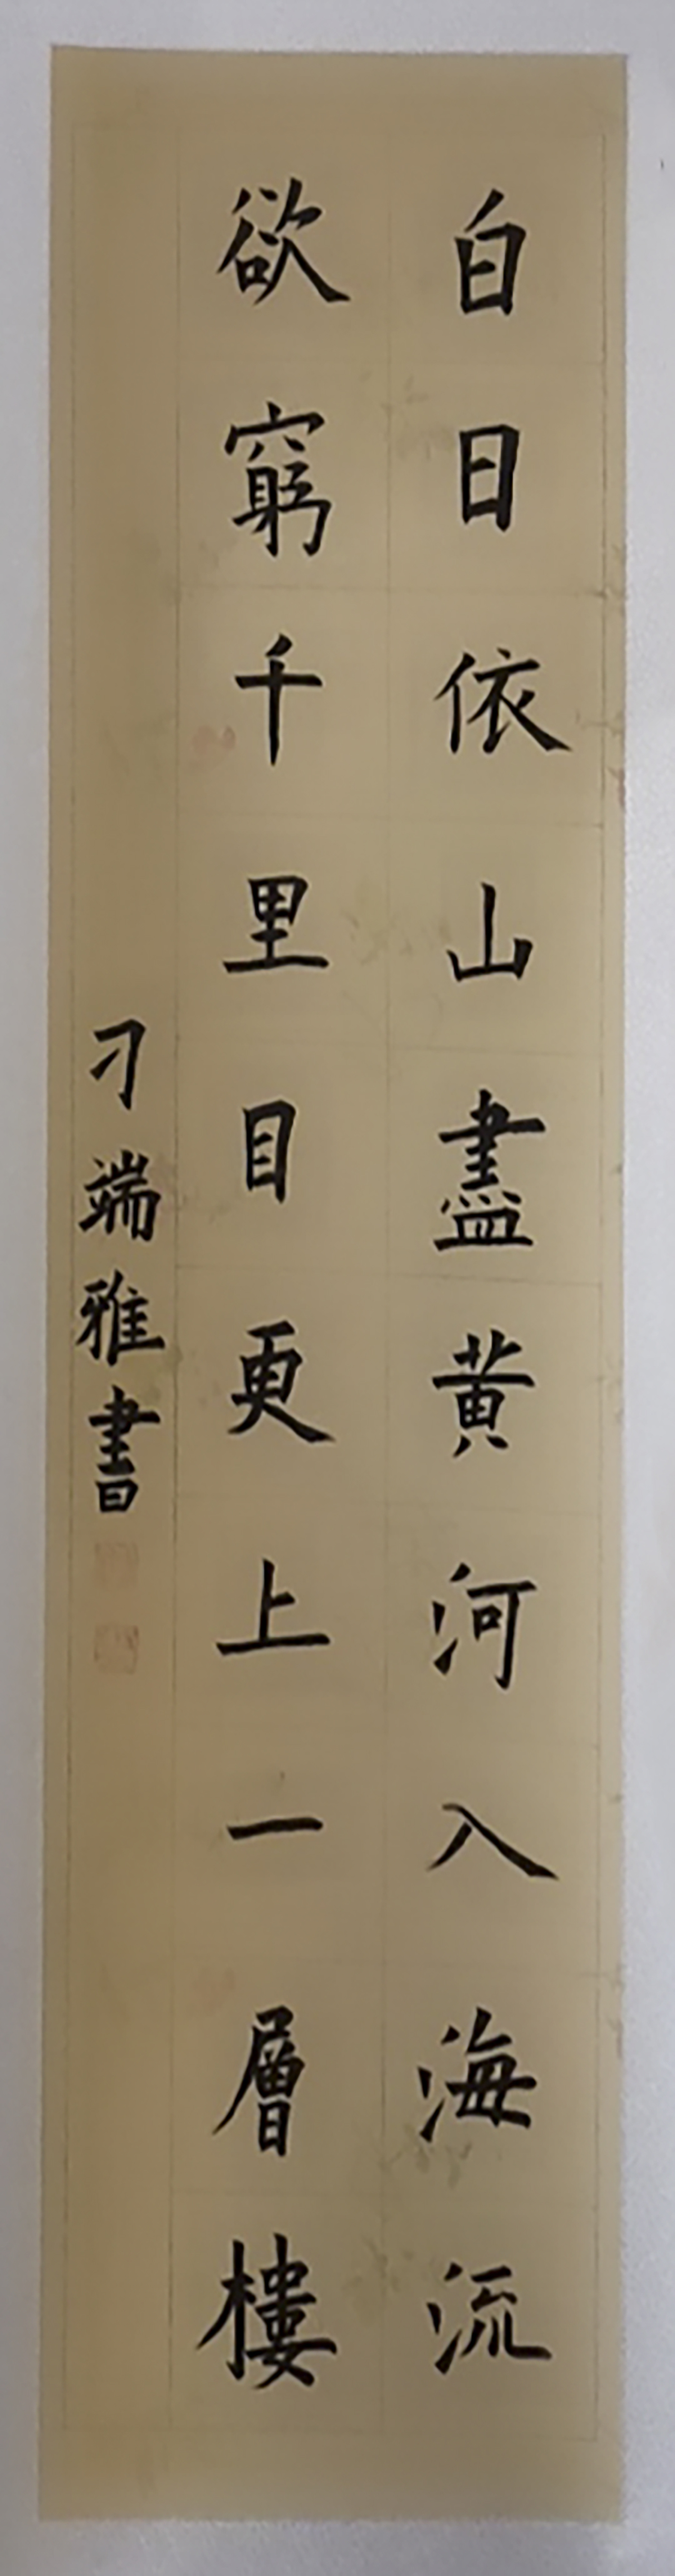 白日依山盡黄河入海流
欲窮千里目更上一層樓
刁端雅書